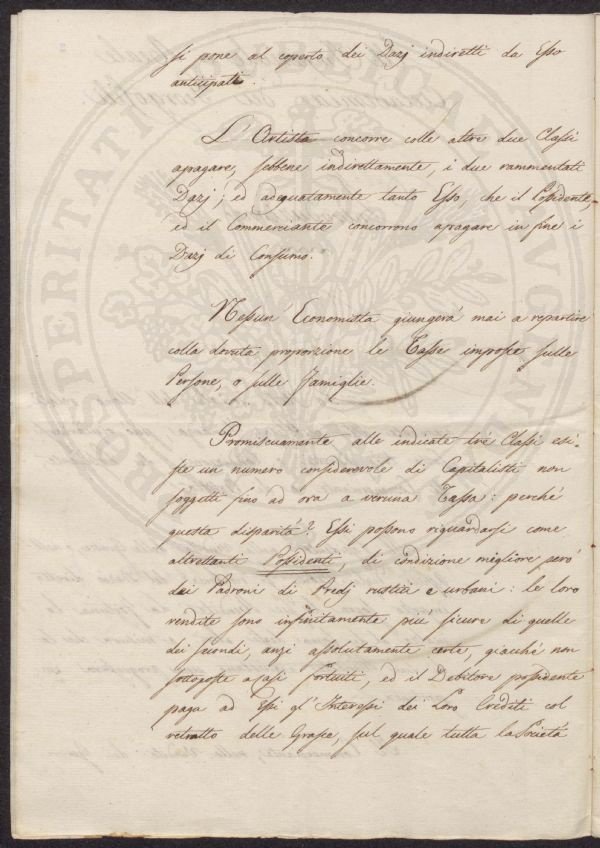 si pone al coperto dei Dazj indiretti da Esso
anticipati.
L'Artista concorre colle altre due Classi
apagare, sebbene indirettamente, i due rammentati
Dazj; ed adequatamente tanto Esso, che il Possidente,
ed il Commerciante concorrono apagare in fine i
Dazj di Consumo.
Nessun' Economista giungerá mai a repartire
colla dovuta proporzione le Tasse imposte sulle
Persone, o sulle Famiglie.
Promiscuamente alle indicate tré Classi esi-
ste un numero considerevole di Capitalisti non
soggetti fino ad ora a veruna Tassa: perché
questa disparitá? Essi possono riguardarsi come
altrettanti Possidenti, di condizione migliore peró
dei Padroni di Predj rustici e urbani: le loro
rendite sono infinitamente piú sicure di quelle
dei secondi, anzi assolutamente certe, giacché non
sottoposte acasi fortuiti, ed il Debitore possidente
paga ad Essi gl'Interessi dei Loro Crediti col
retratto delle Grasce, sul quale tutta la Societá